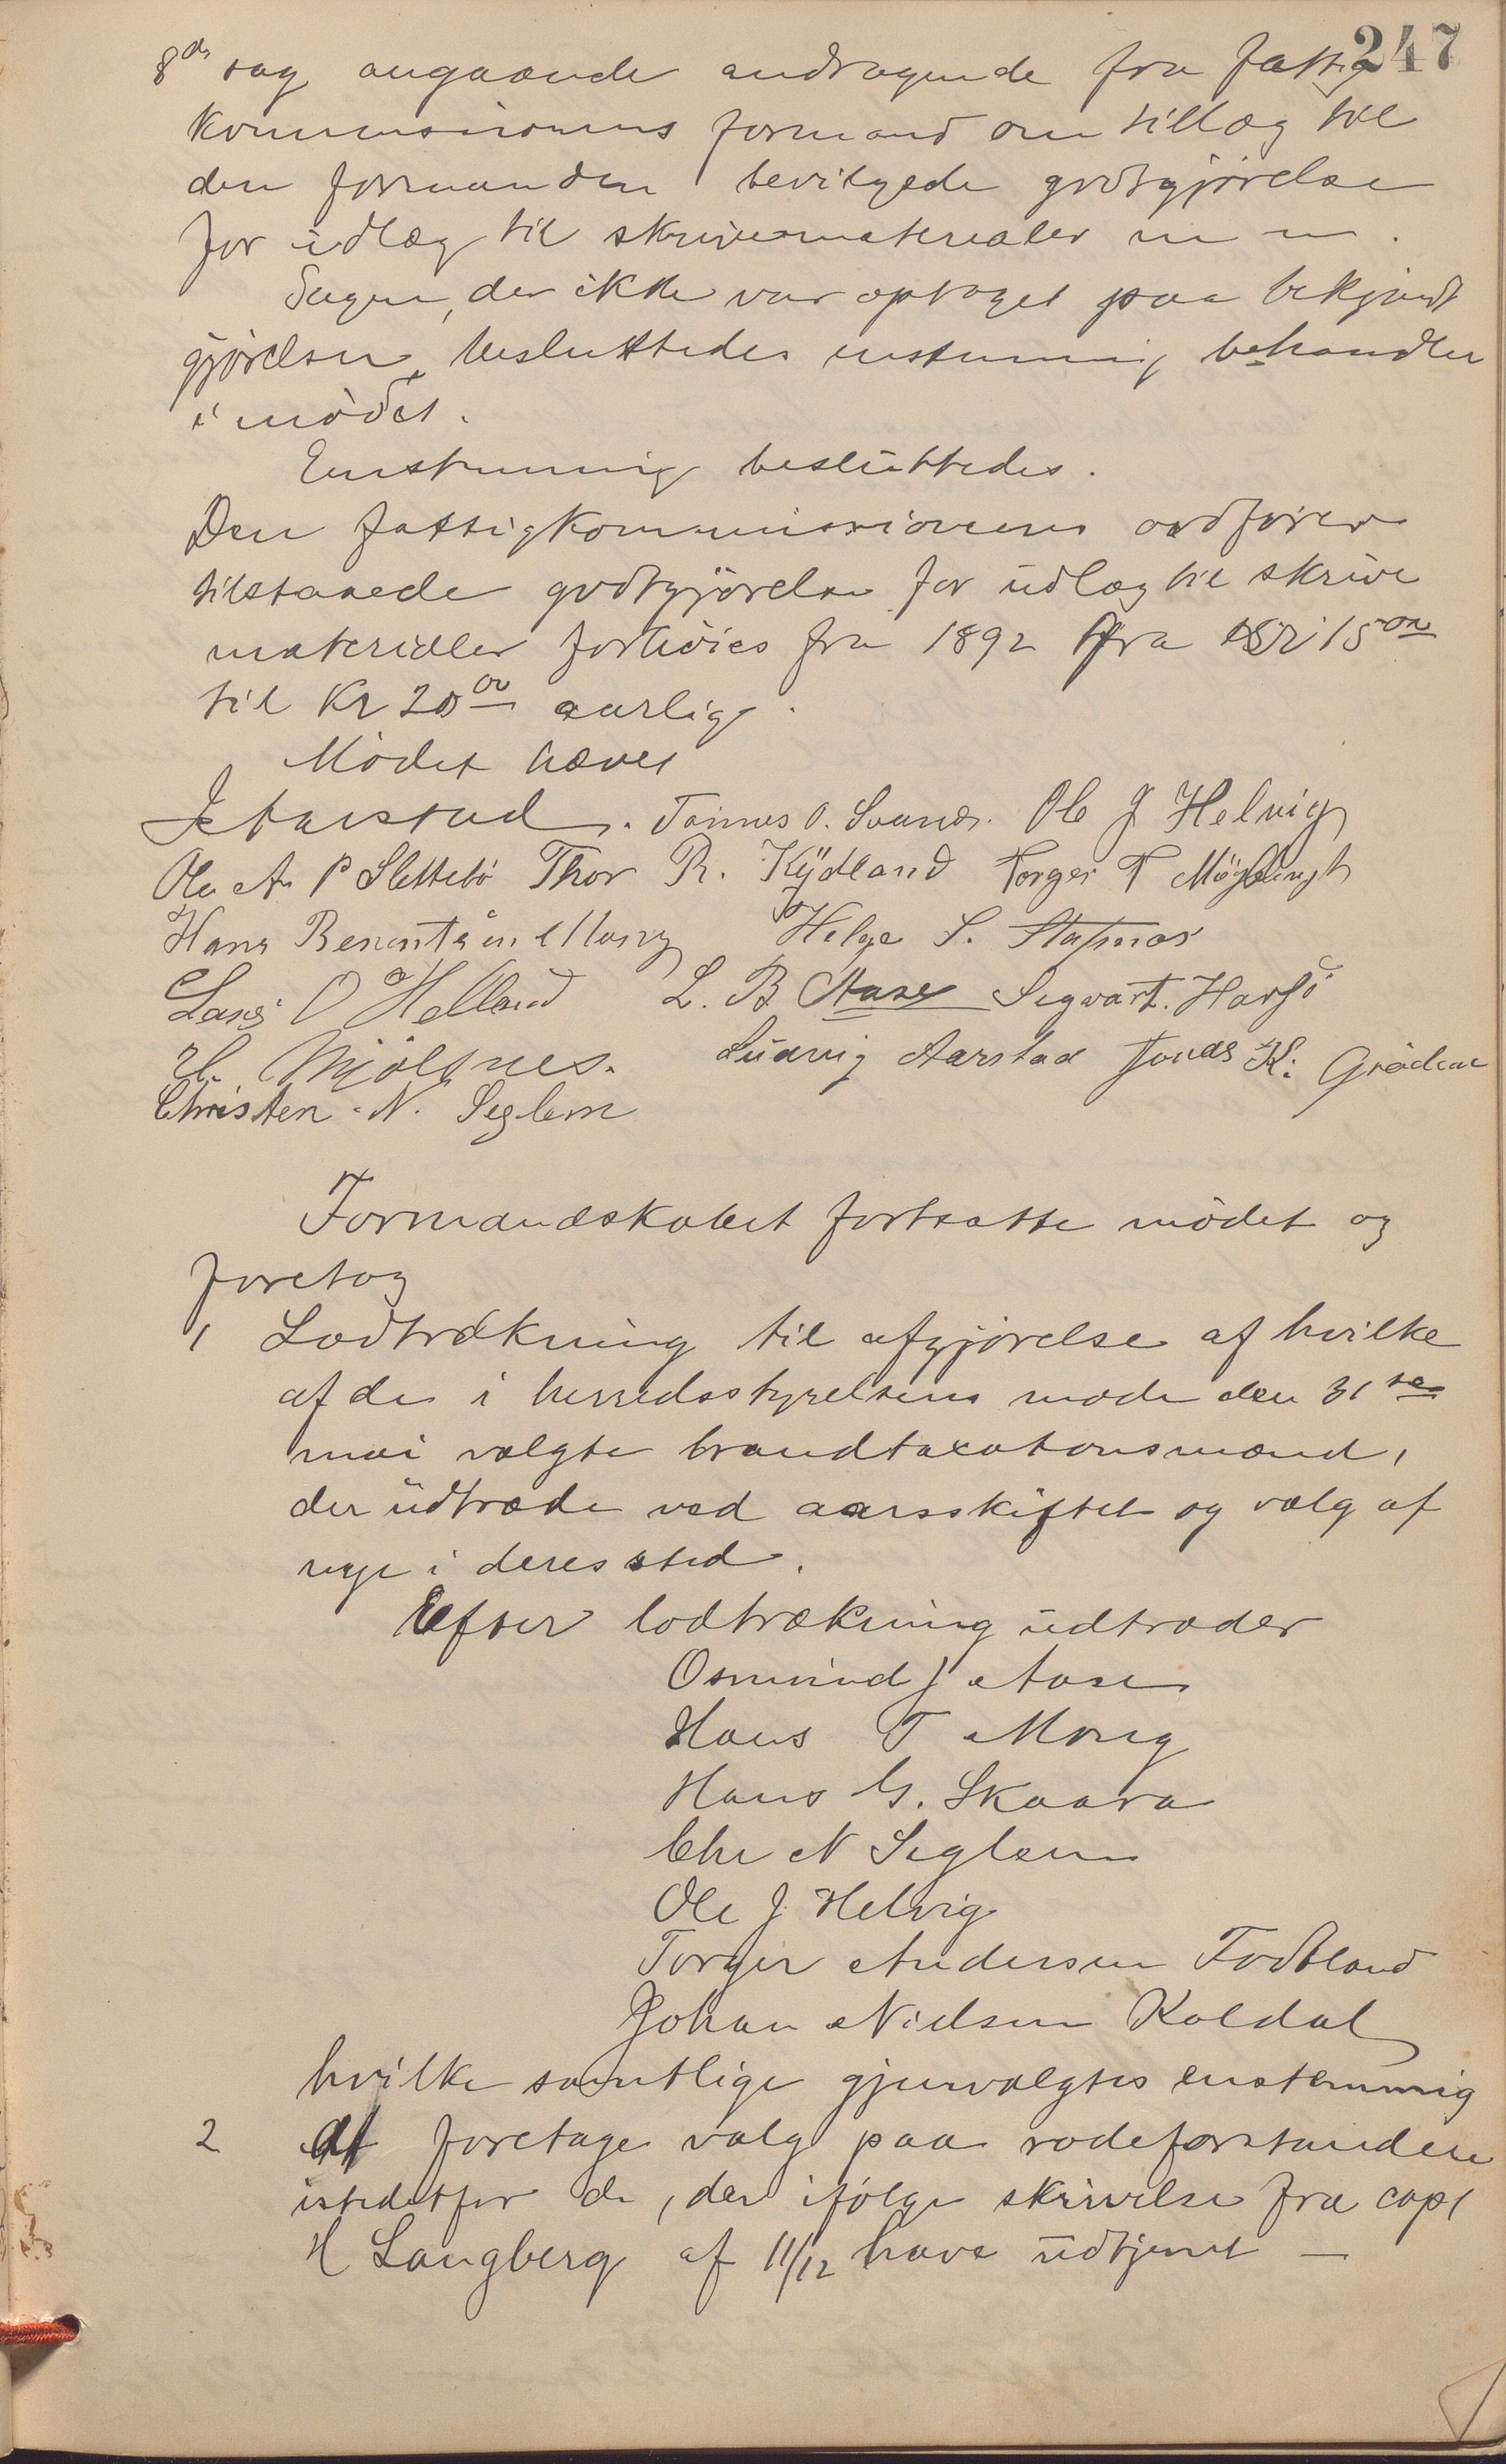 247
8de sag angaaende andragende fra fattig
kommissionens formand om tillæg til
den formanden bevilgede godtgjørelse
for udlæg til skrivematerialer m m.
Sagen, der ikke var optaget paa bekjendt
gjørelsen, besluttedes enstemmig behandlet
i mødet.
Enstemmig besluttedes.
Den fattigkommissionens ordfører
tilstaaede godtgjørelse for udlæg til skrive
materialer forhøies fra 1892 fra Kr 15 00
til Kr 20 00 aarlig.
Mødet hævet
J Aarstad. Tønnes O. Svanes. Ole J Helvig
Ole A P Slettebø Thor R. Kydland Torger T
Hans Berentsen Mong Helge S. Stapnes
Lars O Helland L. B Aase Segvart. Havsø
H. Mjølhus. Ludvig Aarstad Jonas K. Grødem
Christen N. Seglem
Formandskabet fortsatte mødet og
foretog
1 Lodtrækning til afgjørelse af hvilke
af de i herredsstyrelsens møde den 31te
mai valgte brandtaxationsmænd,
der udtræde ved aarsskiftet og valg af
nye i deres sted.
Efter lodtrækning udtræder
Osmund J Aase
Hans T Mong
Hans G. Skaara
Chr N Seglem
Ole J Helvig
Torger Andersen Fodtland
Johan Nielsen Koldal
hvilke samtlige gjenvalgtes enstemmig
2 At foretage valg paa rodeforstandere
istedetfor de, der ifølge skrivelse fra capt
H Langberg af 11/12 have udtjent —